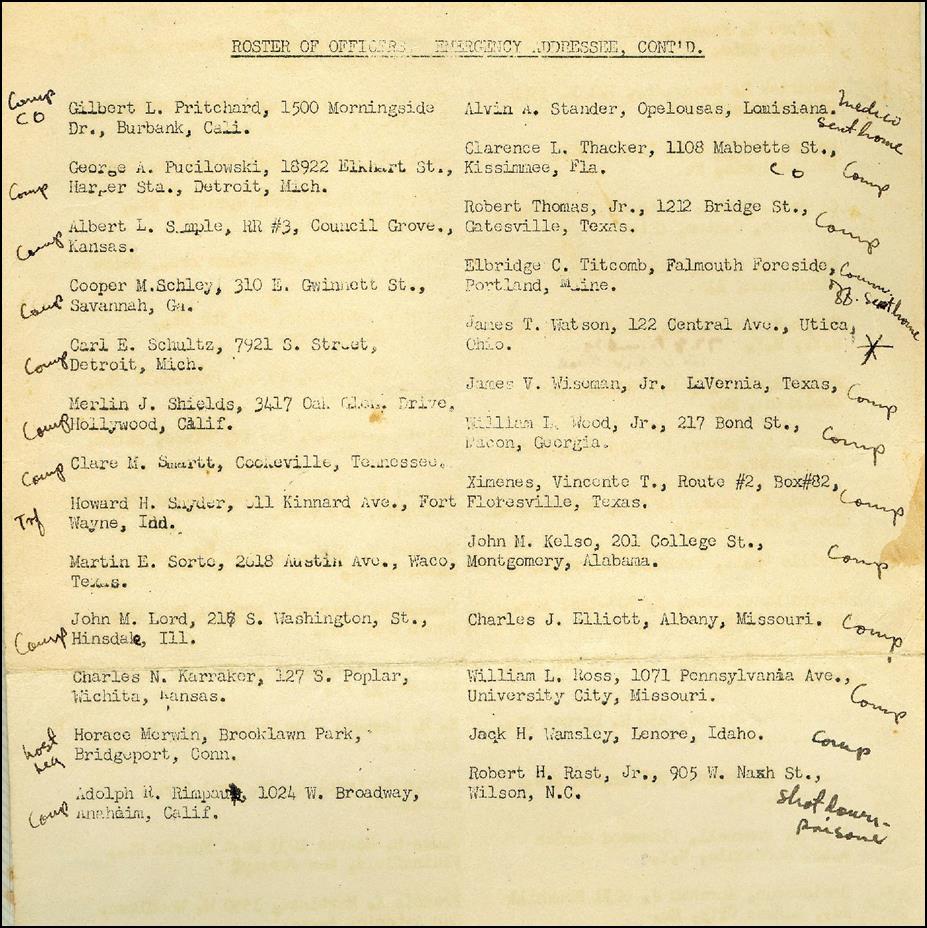 ROSTER OF OFFICERS, EMERGENCY ADDRESSEE, CONT'D.
Comp
CO
Gilbert L. Pritchard, 1500 Morningside
Dr., Burbank, Cali.
Comp
George A. Pucilowski, 18922 Elkhart St.,
Harper Sta., Detroit, Mich.
Comp
Albert L. Semple, RR #3, Council Grove.,
Kansas.
Comp
Cooper M.Schley, 310 E. Gwinnett St.,
Savannah, Ga.
Comp
Carl E. Schultz, 7921 S. Street,
Detroit, Mich.
Comp
Merlin J. Shields, 3417 Oak Glen. Drive,
Hollywood, Calif.
Comp
Clare M. Smartt, Cookeville, Tennessee.
Trf
Howard H. Snyder, 511 Kinnard Ave., Fort
Wayne, Ind.
Martin E. Sorte, 2618 Austin Ave., Waco,
Texas.
Comp
John M. Lord, 218 S. Washington, St.,
Hinsdale, Ill.
Charles N. Karraker, 127 S. Poplar,
Wichita, Kansas.
Lost
leg
Horace Merwin, Brooklawn Park,
Bridgeport, Conn.
Comp
Adolph R. Rimpau, 1024 W. Broadway,
Anaheim, Calif.
Alvin A. Stander, Opelousas, Louisiana.
medico
sent home
Clarence L. Thacker, 1108 Mabbette St.,
Kissimmee, Fla.
CO Comp
Robert Thomas, Jr., 1212 Bridge St.,
Gatesville, Texas.
Comp
Elbridge C. Titcomb, Falmouth Foreside,
Portland, Maine.
Comm.
sent home
James T. Watson, 122 Central Ave., Utica,
Ohio.
James V. Wiseman, Jr. LaVernia, Texas,
Comp
William L. Wood, Jr., 217 Bond St.,
Macon, Georgia.
Comp
Ximenes, Vincente T., Route #2, Box#82,
Floresville, Texas.
Comp
John M. Kelso, 201 College St.,
Montgomery, Alabama.
Comp
Charles J. Elliott, Albany, Missouri.
Comp
William L. Ross, 1071 Pennsylvania Ave.,
University City, Missouri.
Comp
Jack H. Wamsley, Lenore, Idaho.
Comp
Robert H. Rast, Jr., 905 W. Naxh St.,
Wilson, N.C.
Shot down-
prisoner